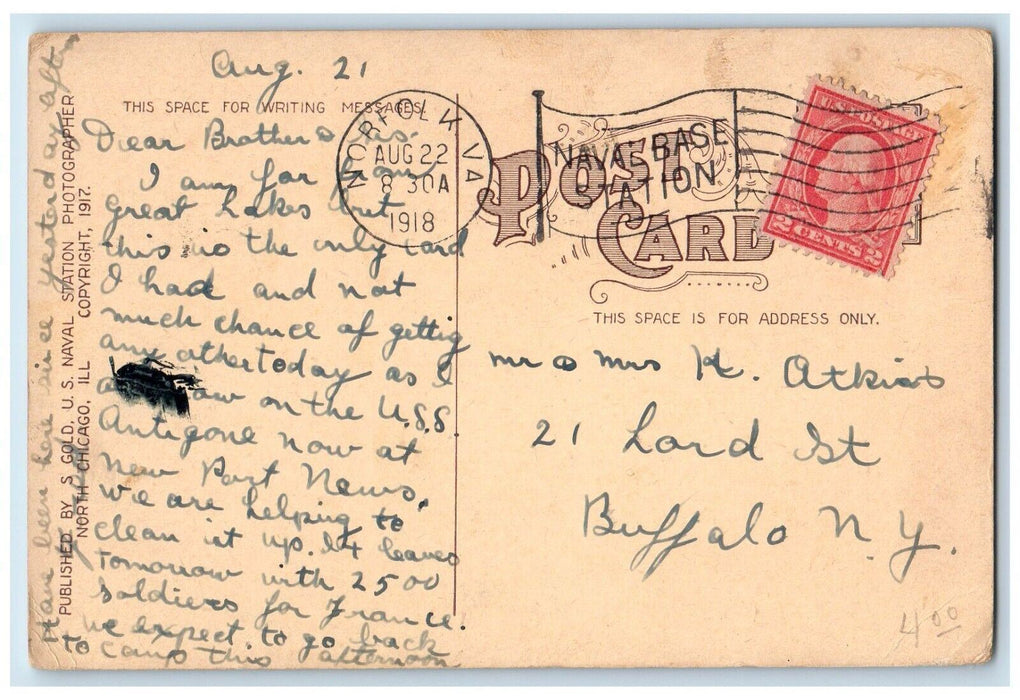 Aug. 21
THIS SPACE FOR WRITING MESSAGES.
Dear Brother & Sis.
I am far from
Great Lakes but
this is the only card
I had and not
much chance of getting
any other today as I
am now on the U.S.S.
Antigone now at
New Port News.
we are helping to
clean it up. It leaves
tomorrow with 2500
soldiers for France.
we expect to go back
to camp this afternoon
Have been here since yesterday aft
PUBLISHED BY S. GOLD, U. S. NAVAL STATION PHOTOGRAPHER
NORTH CHICAGO, ILL COPYRIGHT, 1917.
NORFOLK VA
AUG 22
8 30A
1918
NAVAL BASE
STATION
POST
CARD
U.S. POSTAGE
2 CENTS 2
THIS SPACE IS FOR ADDRESS ONLY.
Mr & Mrs H. Atkins
21 Lord St
Buffalo N.Y.
4 00